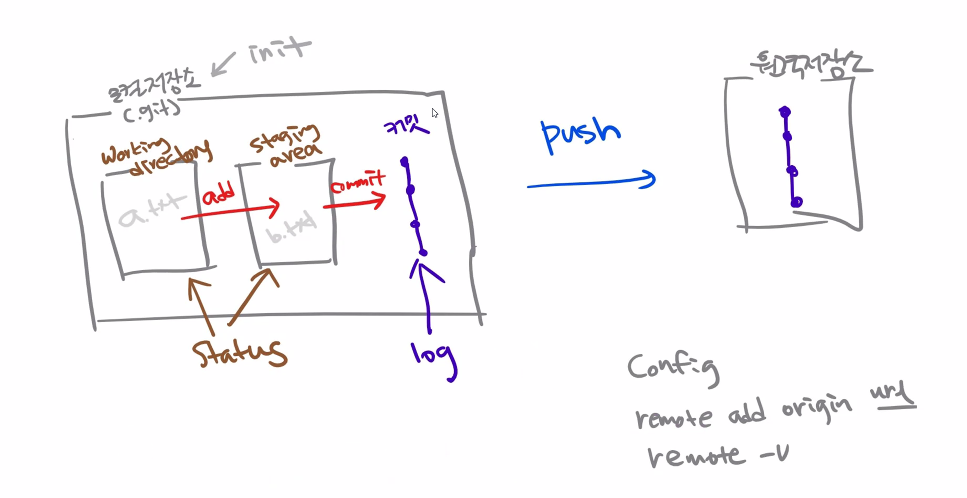 init
로컬저장소
(.git)
working
directory
a.txt
add
staging
area
b.txt
commit
커밋
status
log
push
원격저장소
Config
remote add origin url
remote -v